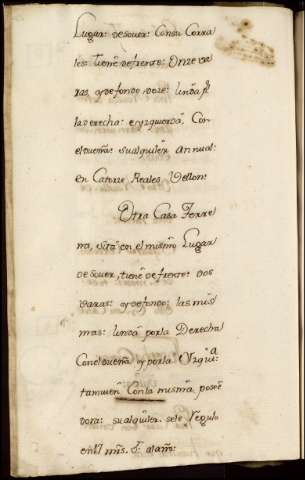 Lugar: de souer: Con su Corra
les: tiene de frente: Onze va
ras, y de fondo doze: linda pr
la derecha: e yzquierda, Con
el dueña: su alquiler annual:
en Catorze Reales, Vellon:
Otra Casa Terre
na, sita en el mismo Lugar
de souer, tiene de frente: dos
varas: y de fondo: las mis
mas: linda por la Derecha
Con el dueña y por la Yzqui.a
tamvien Con la misma posee
dora: su alquiler: se le Regulo
en